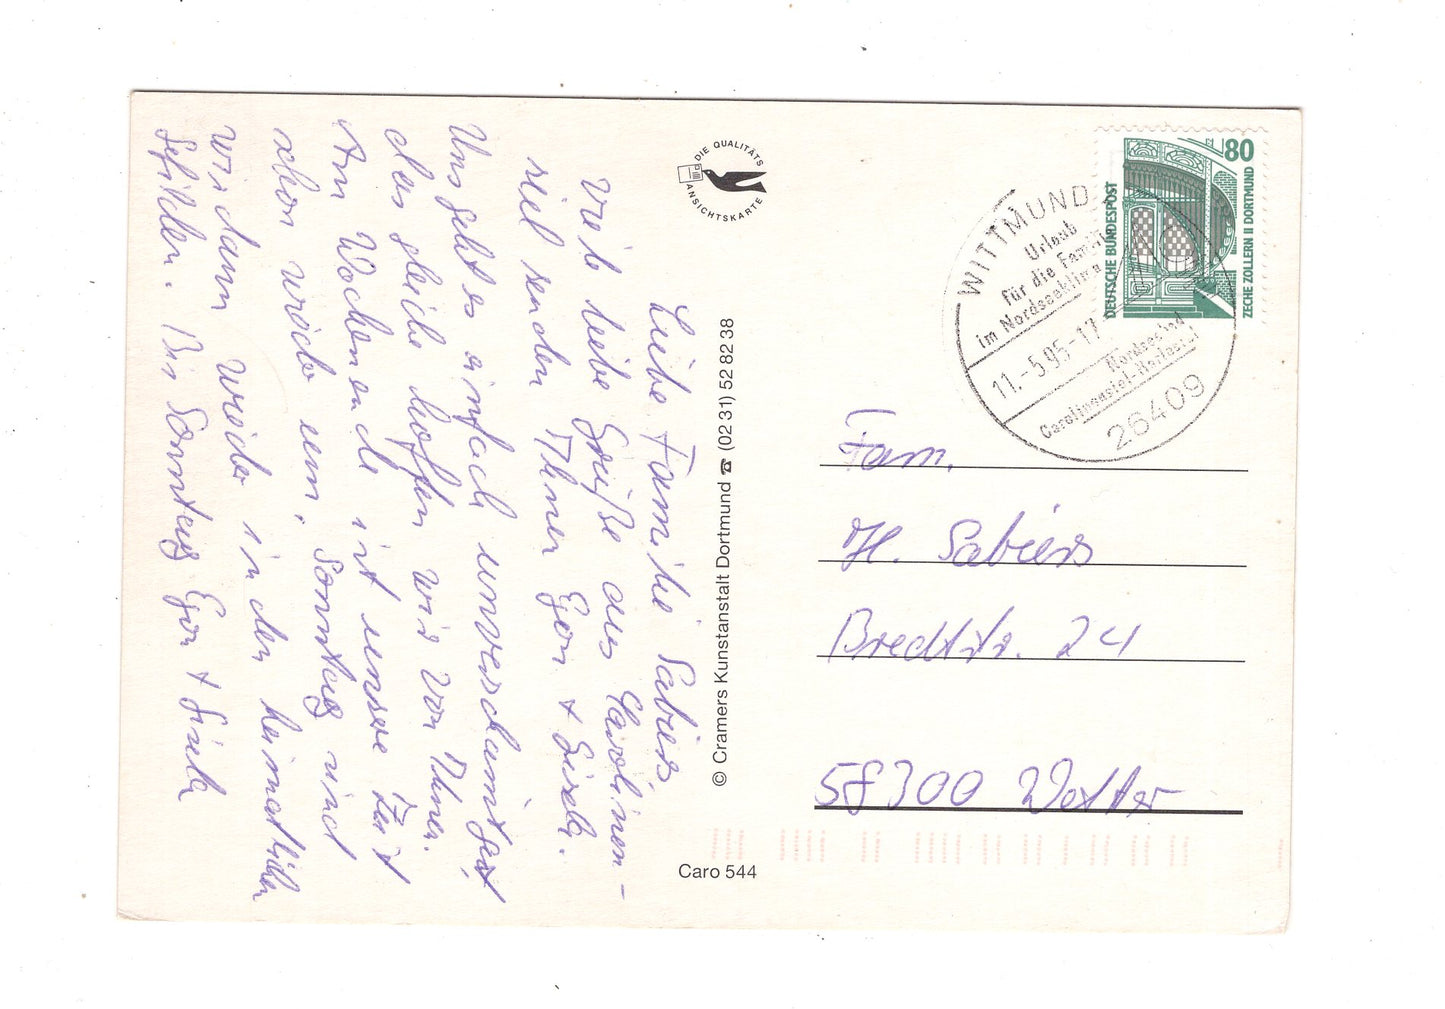 Liebe Familie Sabiers,
Viele liebe Grüße aus Carolinen-
siel senden Ihnen Egon + Gisela.
Uns geht es einfach unverschämt gut,
das gleiche hoffen wir von Ihnen.
Am Wochenende ist unsere Zeit
schon wieder um. Sonntag sind
wir dann wieder in den heimatlichen
Gefilden. Bis Sonntag Egon + Gisela
DIE QUALITÄTS
ANSICHTSKARTE
© Cramers Kunstanstalt Dortmund ☎ (02 31) 52 82 38
Caro 544
80
DEUTSCHE BUNDESPOST
ZECHE ZOLLERN II DORTMUND
WITTMUND
Urlaub
für die Familie
im Nordseeklima
11.-5.95-17
Nordseebad
Carolinensiel-Harlesiel
26409
Fam.
H. Sabiers
Bredtstr. 24
58300 Wetter